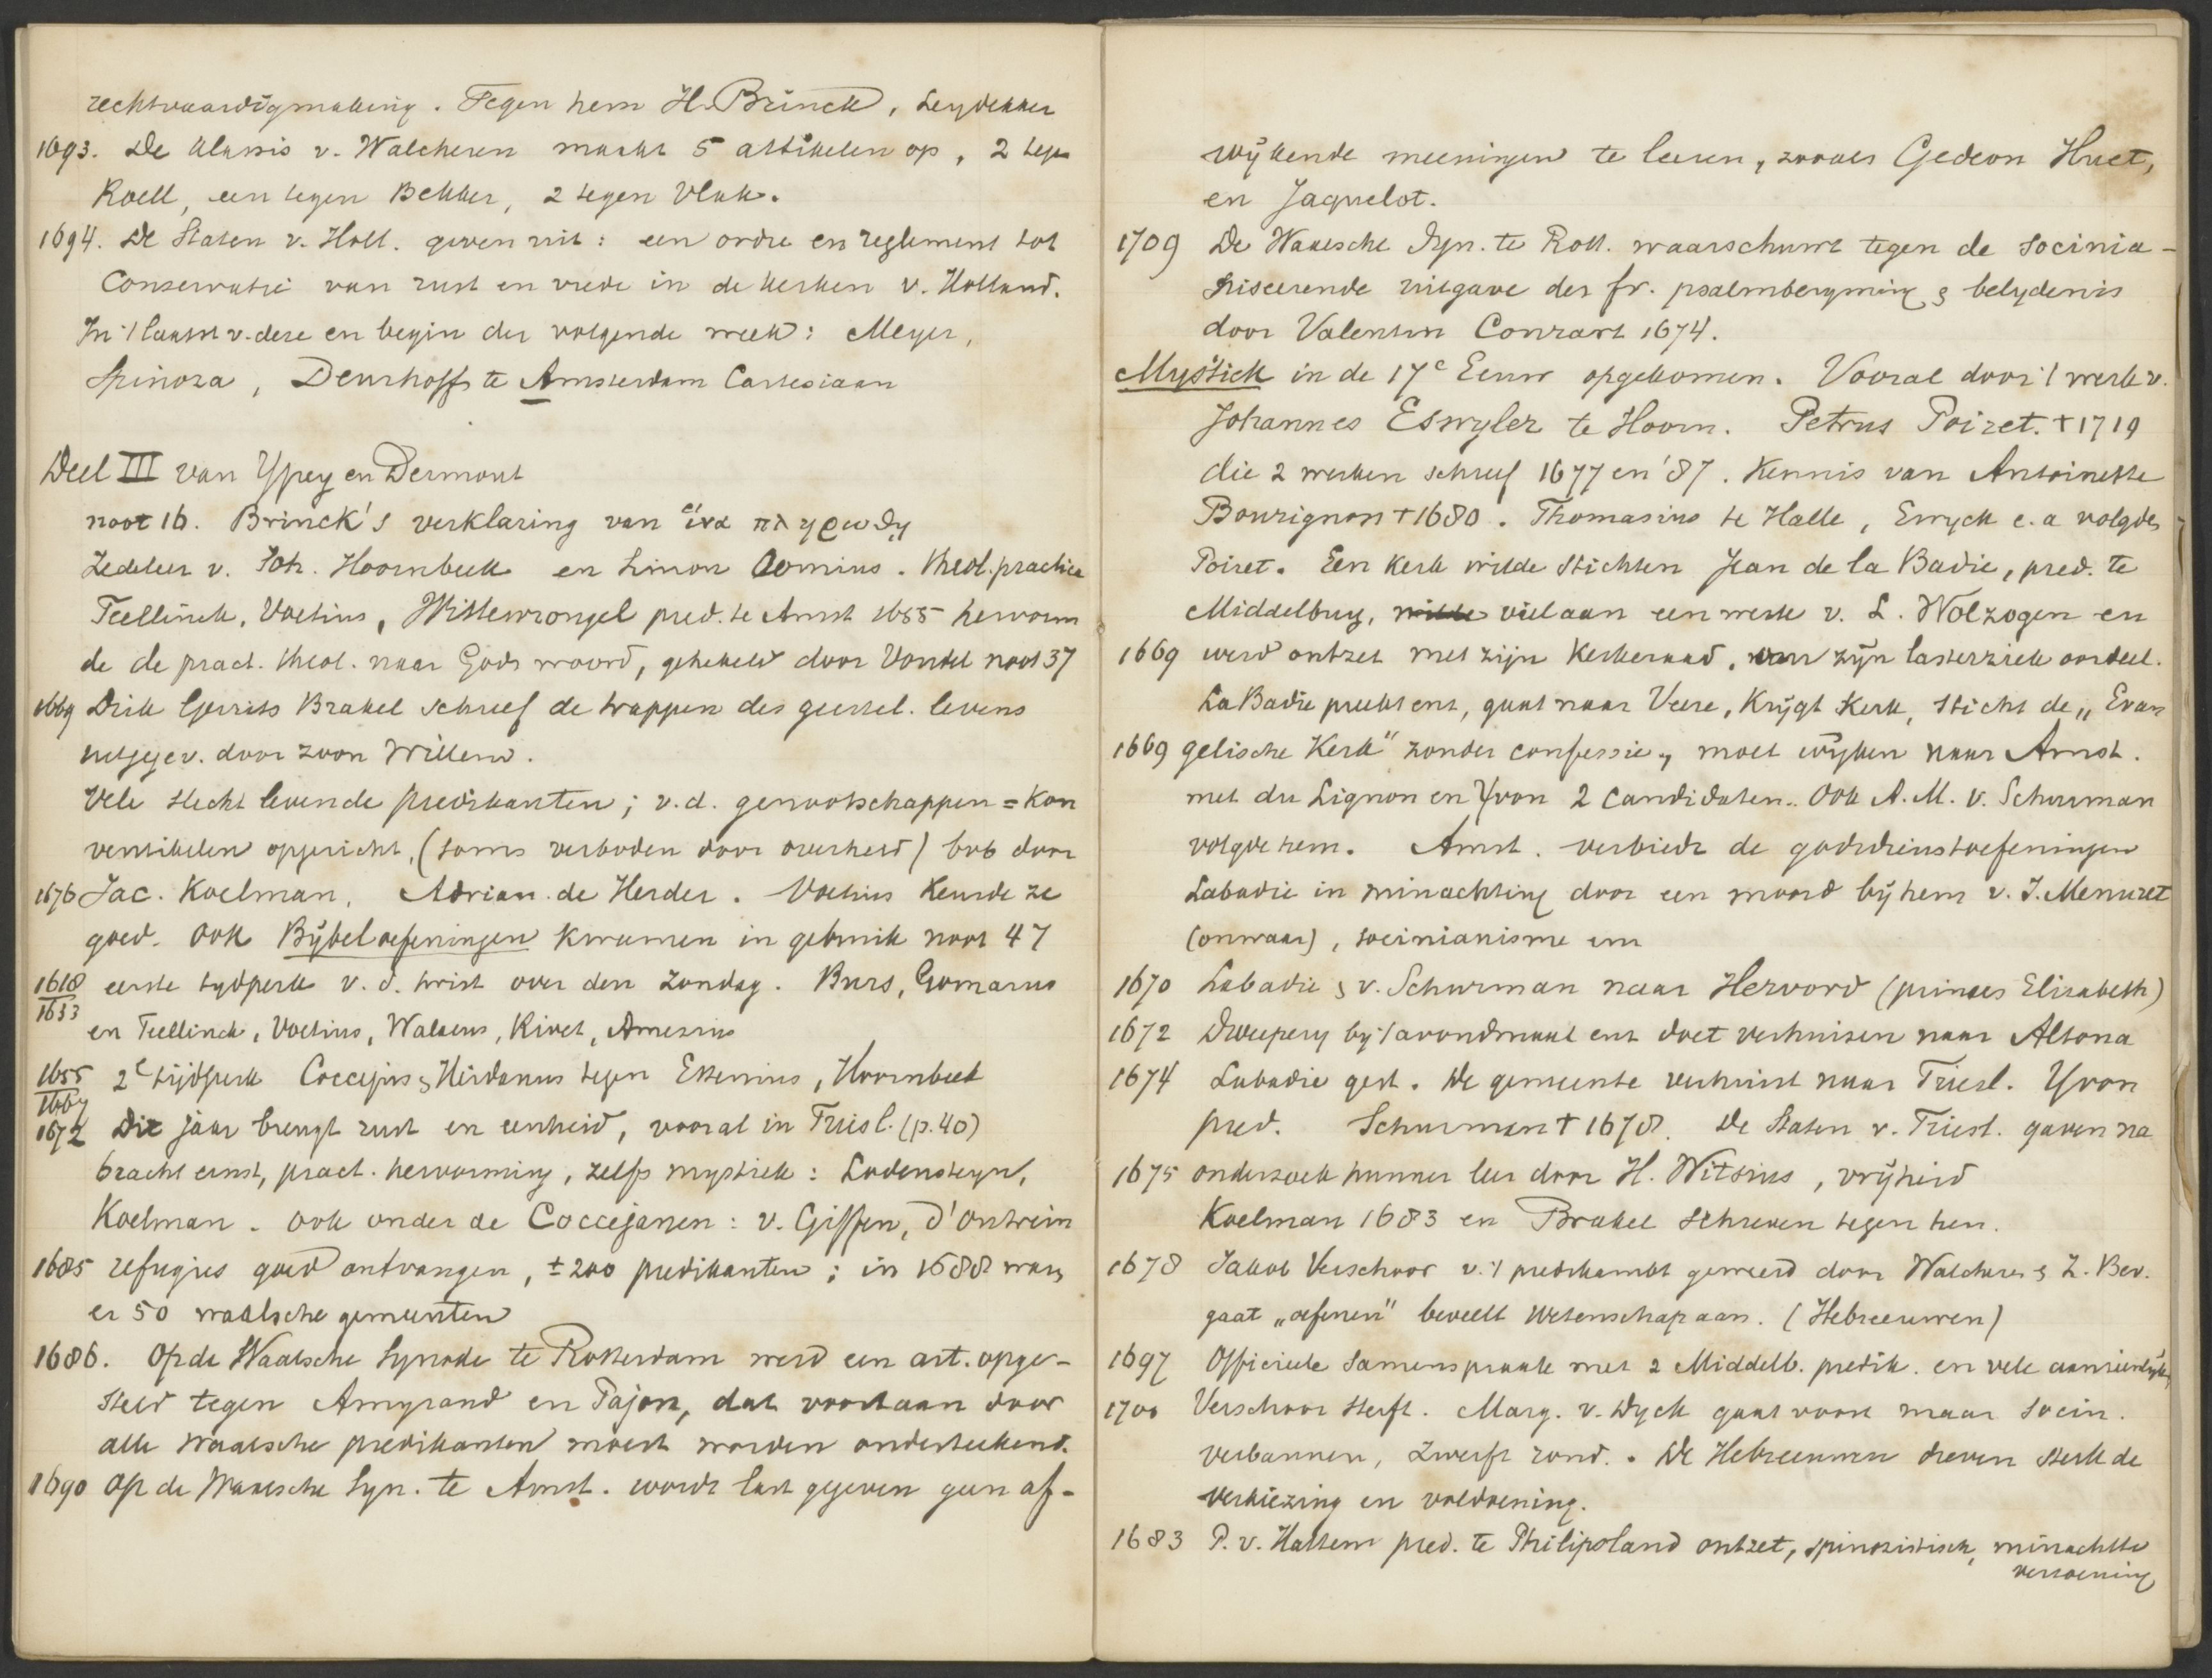 rechtvaardigmaking. Tegen hem H. Brinck, Leydekker
1693. De klassis v. Walcheren maakt 5 artikelen op, 2 tegen
Roell, een tegen Bekker, 2 tegen Vlak.
1694. De Staten v. Holl. geven uit: een ordre en reglement tot
Conservatie van rust en vrede in de kerken v. Holland.
In 't laatst v. deze en begin der volgende eeuw: Meyer,
Spinoza, Deurhoff te Amsterdam Cartesiaan
Deel III van Ypey en Dermout
noot 16. Brinck's verklaring van ἵνα πληρωθῃ
Zedeleer v. Joh. Hoornbeek en Simon Oomius. Theol. practica
Teellinck, Voetius, Wittewrongel pred. te Amst 1655 hervorm
de de pract. theol. naar Gods woord, gehekeld door Vondel noot 37
1669 Dirk Gerrits Brakel schreef de trappen des geestel. levens
uitgegev. door zoon Willem.
Vele slecht levende predikanten; v.d. genootschappen = kon
ventikelen opgericht, (soms verboden door overheid) bvb door
1676 Jac. Koelman, Adrian. de Herder. Voetius keurde ze
goed. Ook Bijbeloefeningen kwamen in gebruik noot 47
1618
1633 eerste tydperk v. d. twist over den Zondag. Burs, Gomarus
en Teellinck, Voetius, Walaeus, Rivet, Amesius
1655
1667 2e tijdperk Coccejus & Heidanus tegen Essenius, Hoornbeek
1672 Dit jaar brengt rust en eenheid, vooral in Friesl. (p. 40)
bracht ernst, pract. hervorming, zelfs mystiek: Lodensteyn,
Koelman. Ook onder de Coccejanen: v. Giffen, d'Outrein
1685 refugies goed ontvangen, ± 200 predikanten; in 1688 waren
er 50 waalsche gemeenten
1686. Op de Waalsche Synode te Rotterdam werd een art. opge-
steld tegen Amyraud en Pajon, dat voortaan door
alle waalsche predikanten moest worden onderteekend.
1690 Op de Waalsche Syn. te Amst. wordt last gegeven geen af-
wijkende meeningen te leeren, zooals Gedeon Huet,
en Jaquelot.
1709 De Waalsche Syn. te Rott. waarschuwt tegen de Socinia-
niseerende uitgave der fr. psalmberyming & belydenis
door Valentin Conrart 1674.
Mystick in de 17e Eeuw opgekomen. Vooral door 't werk v.
Johannes Eswyler te Hoorn. Petrus Poiret. † 1719
die 2 werken schreef 1677 en '87. Kennis van Antoinette
Bourignon † 1680. Thomasius te Halle, Eswyck e.a volgden
Poiret. Een kerk wilde stichten Jean de la Badie, pred. te
Middelburg, wilde viel aan een werk v. L. Wolzogen en
1669 werd ontzet met zijn kerkeraad, van zijn lasterziek oordeel.
La Badie preekt ens, gaat naar Veere, krijgt kerk, sticht de „Evan
1669 gelische Kerk" zonder confessie, moet wijken naar Amst.
met du Lignon en Yvon 2 candidaten. Ook A. M. v. Schurman
volgde hem. Amst. verbiedt de godsdienstoefeningen
Labadie in minachting door een moord bij hem v. J. Menuret
(onwaar), socinianisme enz
1670 Labadie & v. Schurman naar Hervord (princes Elisabeth)
1672 Dweepery by 't avondmaal ens doet verhuizen naar Altona
1674 Labadie gest. De gemeente verhuist naar Friesl. Yvon
pred. Schurman † 1678. De Staten v. Friesl. gaven na
1675 onderzoek hunner leer door H. Witsius, vrijheid
Koelman 1683 en Brakel schreven tegen hen.
1678 Jakob Verschoor v. 't predikambt geweerd door Walcheren & Z. Bev.
gaat „oefenen" beveelt wetenschap aan. (Hebreeuwen)
1697 Officieele samenspraak met 2 Middelb. predik. en vele aanzienlijken
1700 Verschoor sterft. Marg. v. Dyck gaat voort maar socin.
verbannen, zwerft rond. De Hebreeuwen dreven sterk de
verkiezing en voldoening.
1683 P. v. Hattem pred. te Philipsland ontzet, spinozistisch, minachtte
verzoening